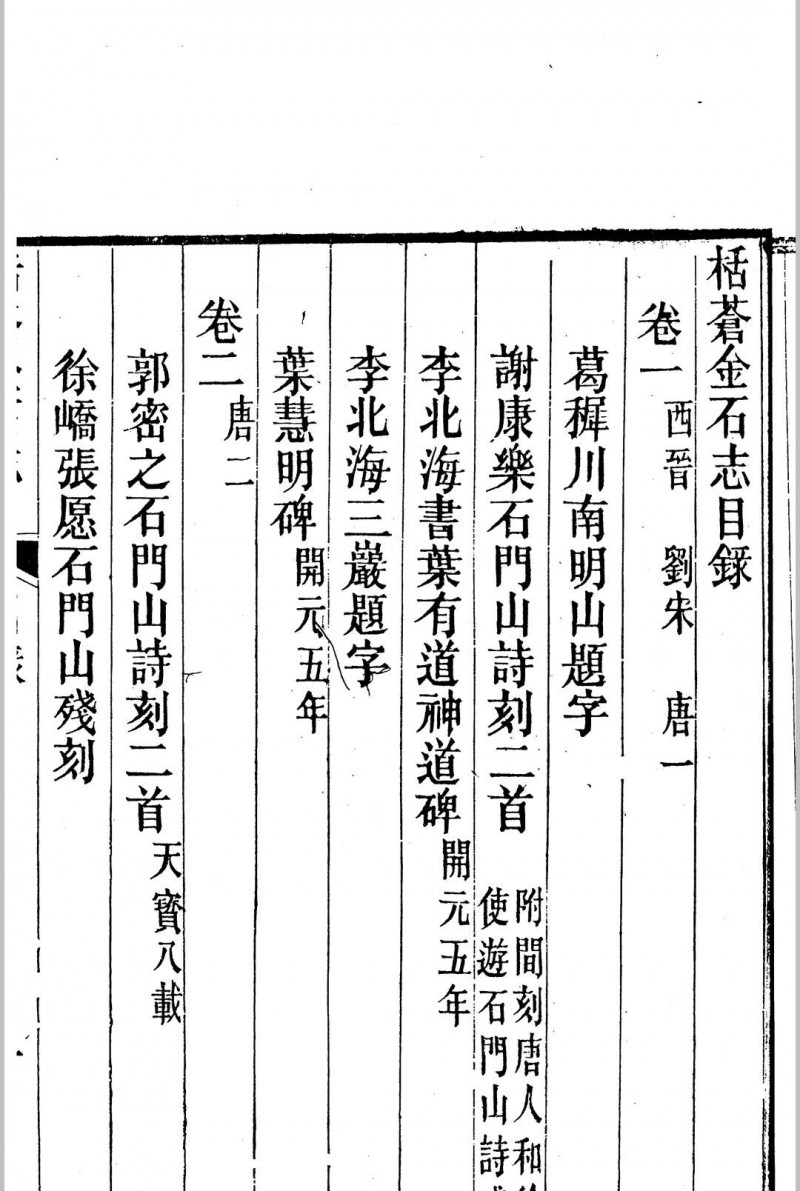 栝蒼金石志目錄
卷一 西晉 劉宋 唐一
葛稺川南明山題字
謝康樂石門山詩刻二首 附間刻唐人和
使遊石門山詩
李北海書葉有道神道碑 開元五年
李北海三巖題字
葉慧明碑 開元五年
卷二 唐二
郭密之石門山詩刻二首 天寶八載
徐嶠張愿石門山殘刻